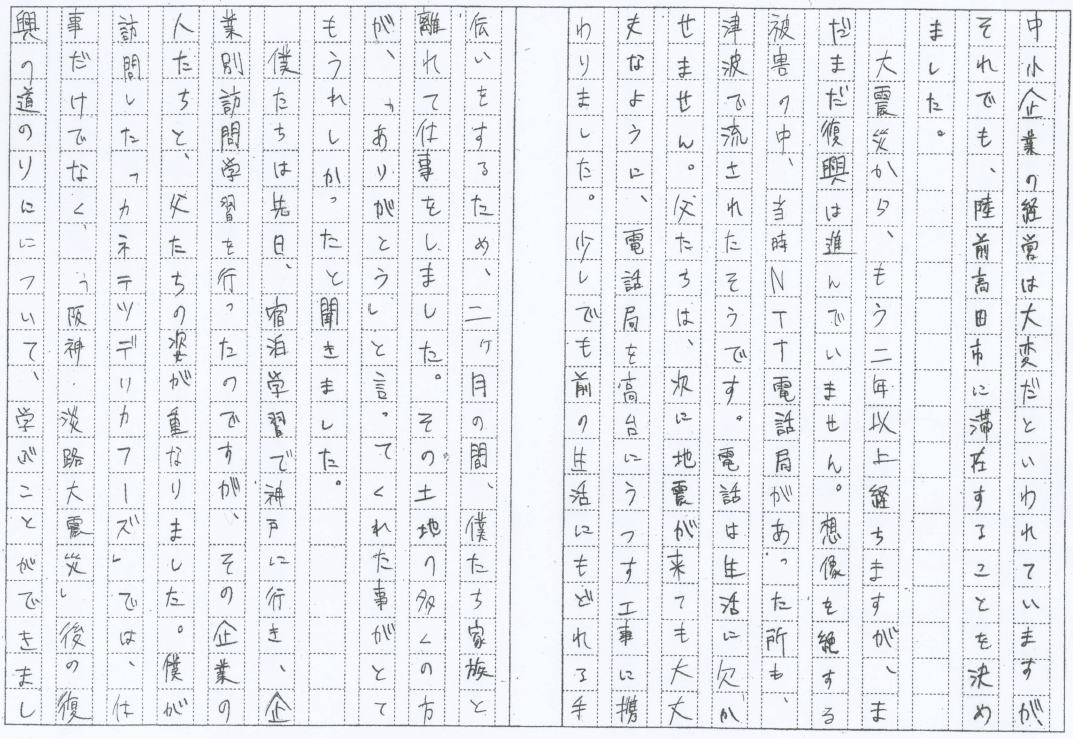 中小企業の経営は大変だといわれていますが
それでも、陸前高田市に滞在することを決め
ました。
大震災から、もう二年以上経ちますが、ま
だまだ復興は進んでいません。想像を絶する
被害の中、当時NTT電話局があった所も、
津波で流されたそうです。電話は生活に欠か
せません。父たちは、次に地震が来ても大大
夫なように、電話局を高台にうつす工事に携
わりました。少しでも前の生活にもどれる手
伝いをするため、二ヶ月の間、僕たち家族と
離れて仕事をしました。その土地の多くの方
が、「ありがとう」と言ってくれた事がとて
もうれしかったと聞きました。
僕たちは先日、宿泊学習で神戸に行き、企
業別訪問学習を行ったのですが、その企業の
人たちと、父たちの姿が重なりました。僕が
訪問した「カネテツデリカフーズ」では、仕
事だけでなく、「阪神・淡路大震災」後の復
興の道のりについて、学ぶことができまし